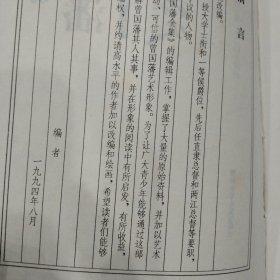 言
改编。
授大学士衔和一等侯爵位，先后任直隶总督和两江总督等要职，
议的人物。
国藩全集》的编辑工作，掌握了大量的原始资料，并加以艺术
动、可信的曾国藩艺术形象。为了让广大青少年能够通过这部
解曾国藩其人其事，并在形象的阅读中有所启发，有所收益，
权，并约请高水平的作者加以改编和绘画，希望读者们能够
编者
一九九四年八月